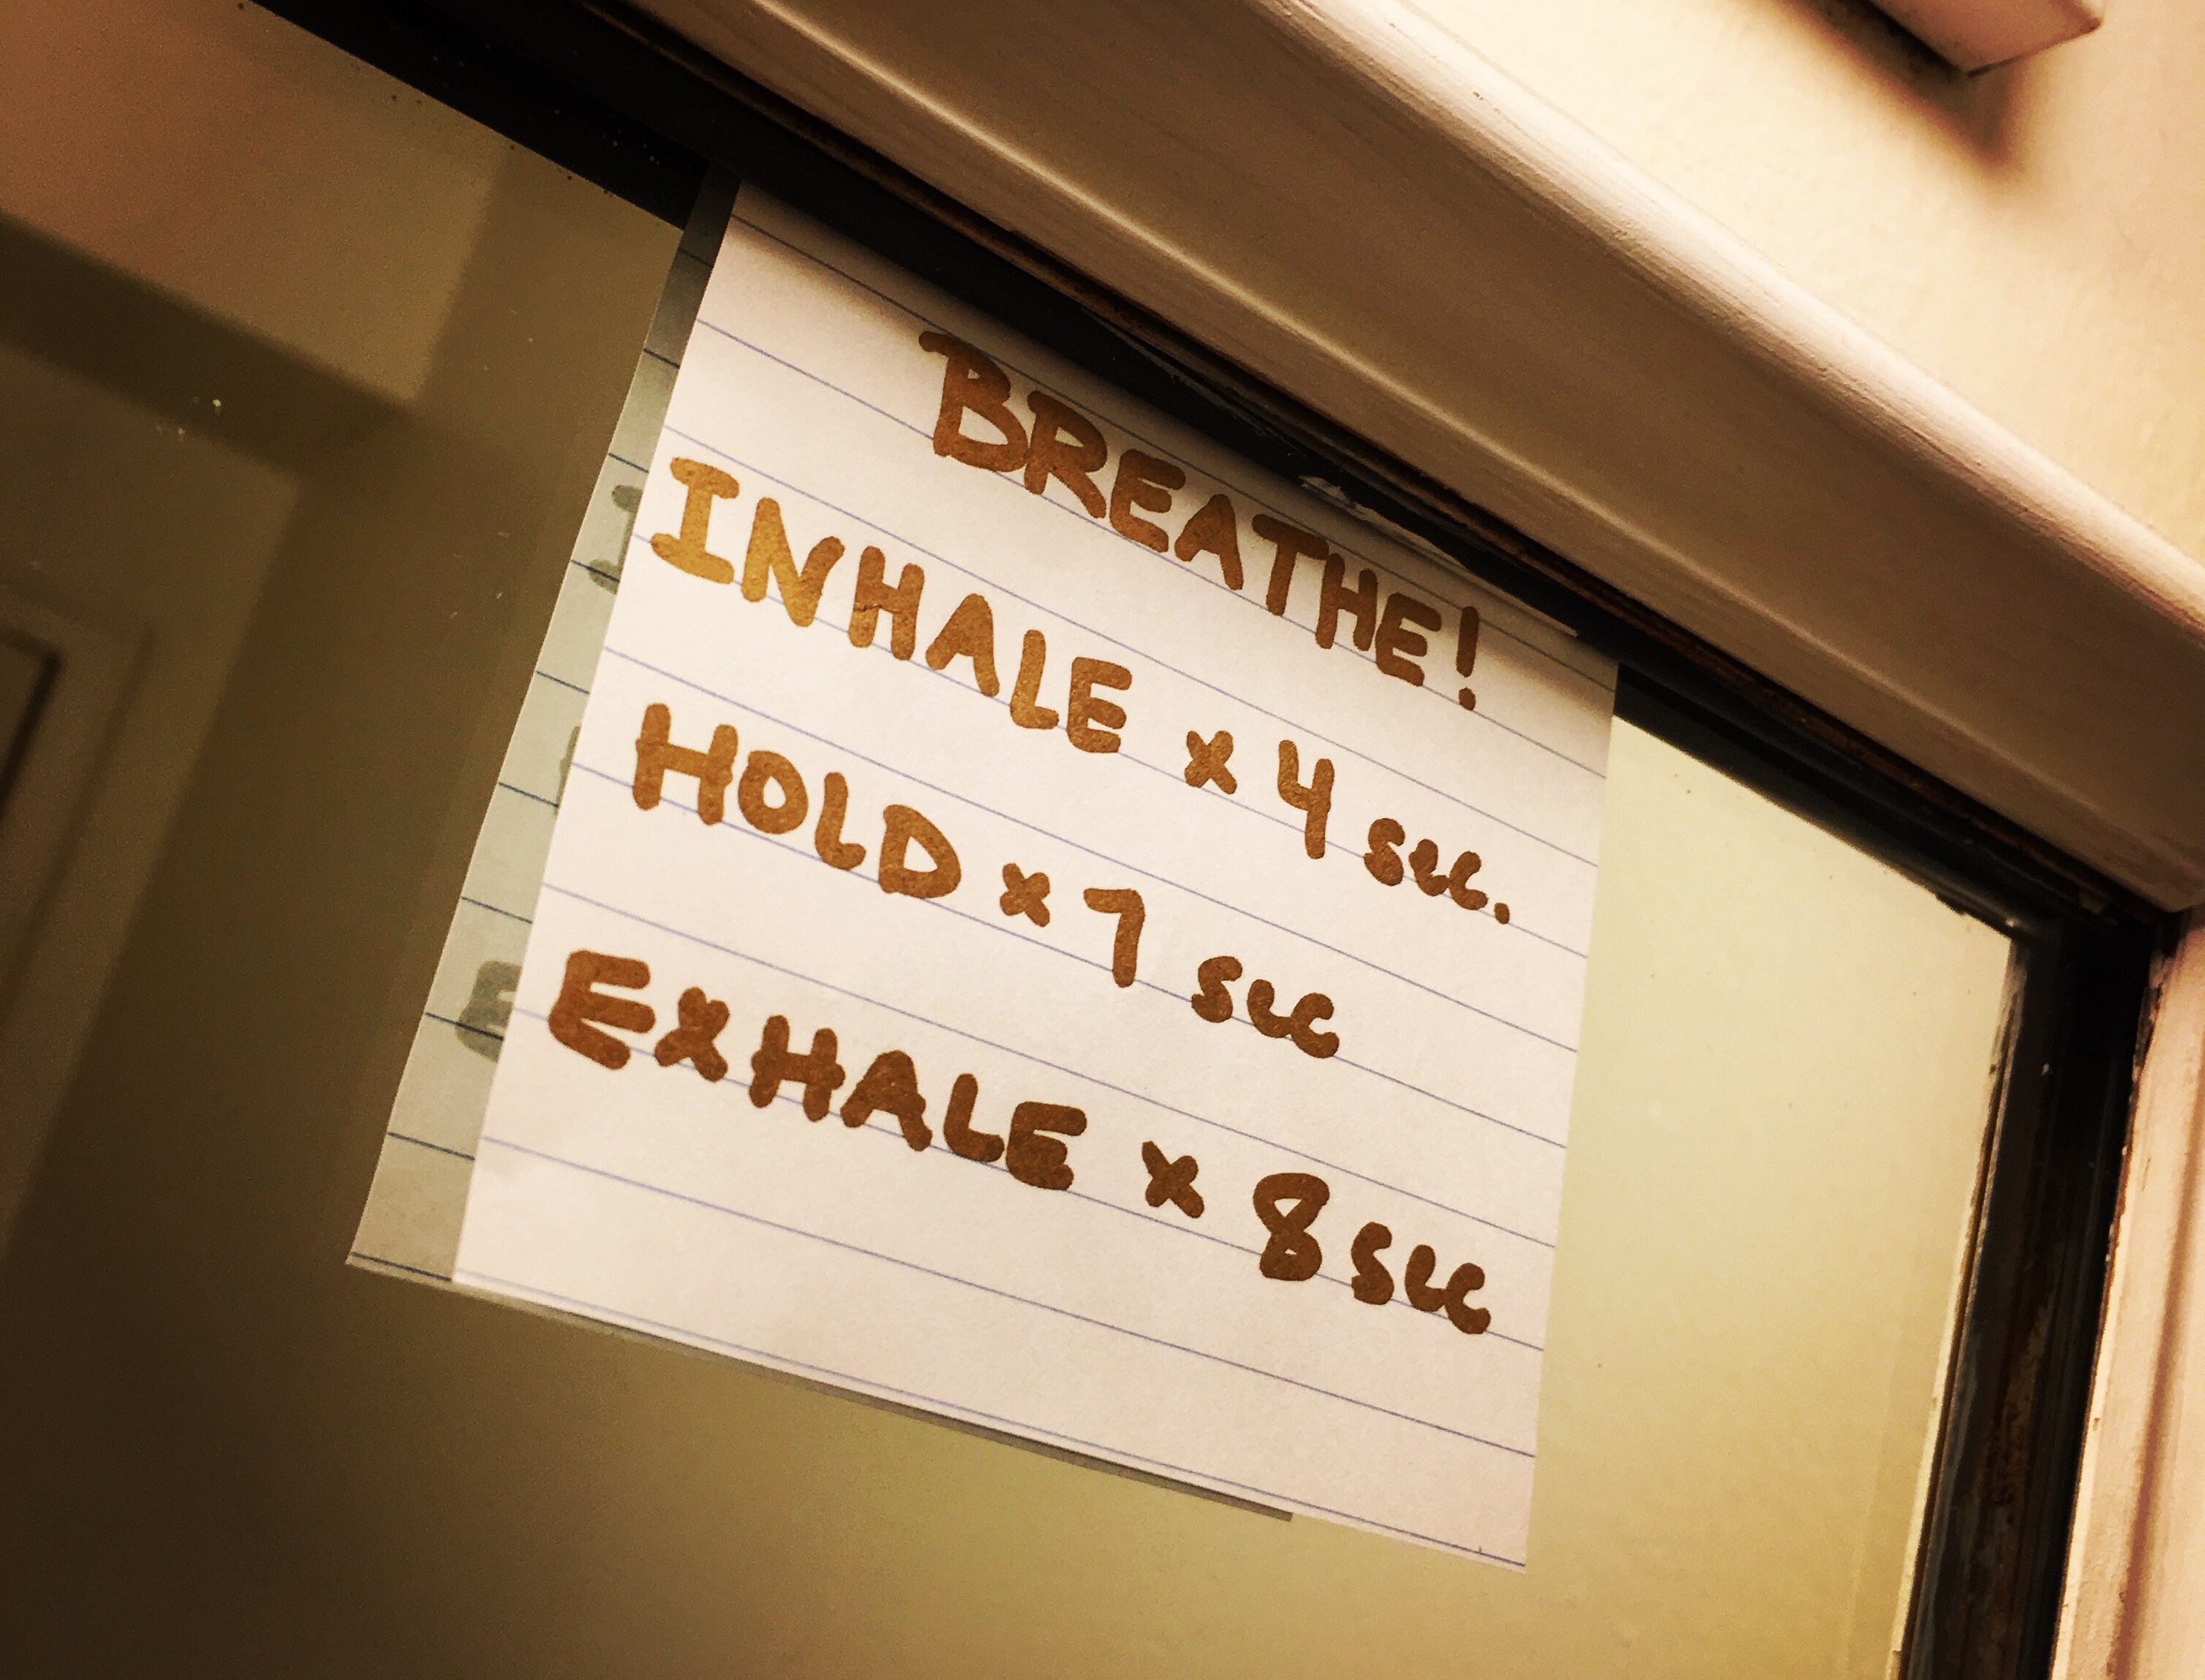 BREATHE!
INHALE x 4 sec.
HOLD x 7 sec
EXHALE x 8 sec